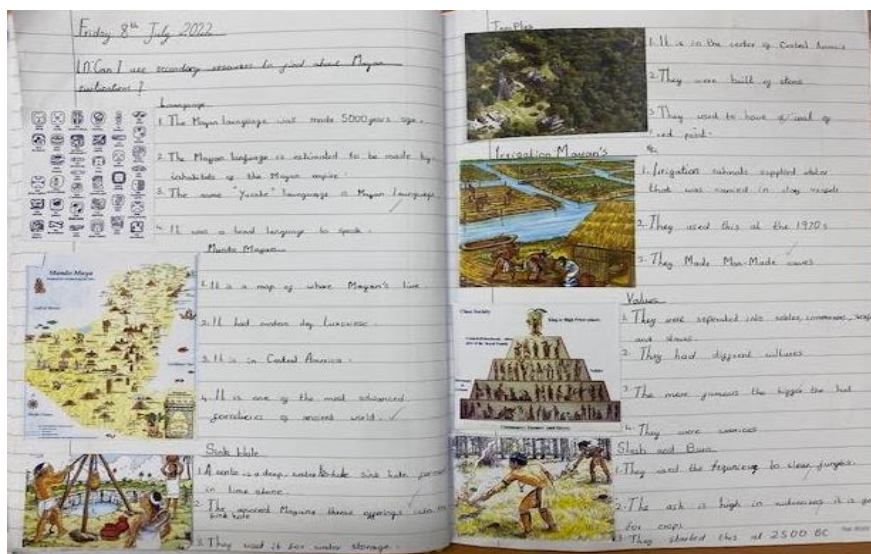 Friday 8th July 2022
LO: Can I use secondary resources to find about Mayan
civilizations?
Language
1. The Mayan language was made 5000 years ago.
2. The Mayan language is estimated to be made by
inhabitants of the Mayan empire.
3. The name "Yucate" language is Mayan language
4. It was a hard language to speak.
Mundo Mayan
Mundo Maya
1. It is a map of where Mayan's live.
2. It had modern day
3. It is in Central America.
4. It is one of the most advanced
of ancient world.
Sink Hole
1. A is a deep, sink hole
in lime stone
2. The ancient Mayans threw offerings into the
sink hole
3. They used it for water storage.
Temples
1. It is in the center of Central America
2. They were built of stone
3. They used to have a coat of
red paint.
Irrigation Mayan's
1. Irrigation supplied water
that was carried in clay vessels
2. They used this at the 1970s
3. They Made Man-Made
Class Society
Values
1. They were seperated into nobles, commoners,
and slaves.
2. They had different cultures
3. The more famous the bigger the hat
4. They were warriors
Slash and Burn
1. They used the to clear jungles.
2. The ash is high in it is
for crops
3. They started this at 2500 BC